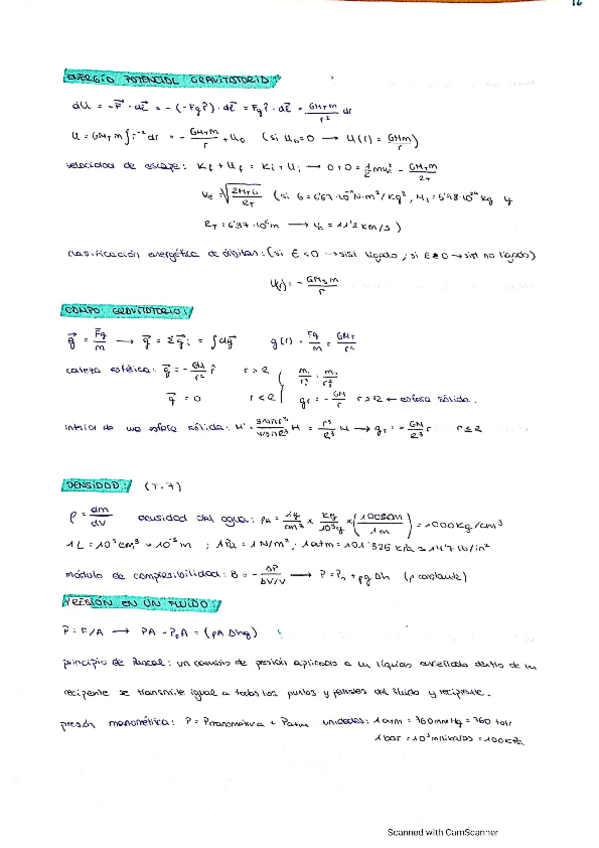 12
ENERGÍA POTENCIAL GRAVITATORIA:
dU = -F⃗ · dℓ⃗ = -(-Fg r̂) · dℓ⃗ = Fg r̂ · dℓ⃗ = GM_T m / r² dr
U = GM_T m ∫ r⁻² dr = - GM_T m / r + U₀ (si U₀=0 → U(r) = GMm / r)
velocidad de escape: K_f + U_f = K_i + U_i → 0+0 = 1/2 mv_e² - GM_T m / 2_T
v_e = √(2M_T G / R_T) (si G = 6'67·10⁻¹¹ N·m²/Kg², M_T = 5'98·10²⁴ Kg y
R_T = 6'37·10⁶ m → v_e = 11'2 km/s)
clasificación energética de órbitas: (si E<0 → sist ligado, si E≥0 → sist no ligado)
U(r) = - GM_s m / r
CAMPO GRAVITATORIO:
g⃗ = F⃗g / m → g⃗ = Σg⃗ᵢ = ∫dg⃗ g(r) = Fg / m = GM_T / r²
corteza esférica: g⃗ = - GM / r² r̂ r>R m₁ / r₁² = m₂ / r₂²
g⃗ = 0 r<R g_r = - GM / r r>R ← esfera sólida.
interior de una esfera sólida: M' = 4/3πr³ / 4/3πR³ M = r³ / R³ M → g_r = - GM / R³ r r≤R
DENSIDAD: (T.7)
ρ = dm / dV densidad del agua: ρ_A = 1g / cm³ × kg / 10³g × (100cm / 1m) = 1000Kg/cm³
1L = 10³cm³ = 10⁻³m ; 1Pa = 1N/m² ; 1atm = 101'325 kPa ≈ 14'7 lb/in²
módulo de compresibilidad: B = - ΔP / ΔV/V → P = P₀ + ρgΔh (ρ constante)
PRESIÓN EN UN FLUIDO:
P = F/A → PA - P₀A = (ρAΔhg)
principio de Pascal: un cambio de presión aplicado a un líquido encerrado dentro de un
recipente se transmite igual a todos los puntos y paredes del fluido y recipiente.
presión manométrica: P = Pmanométrica + Patm unidades: 1atm = 760mmHg = 760 torr
1bar = 10³milibares = 100KPa
Scanned with CamScanner